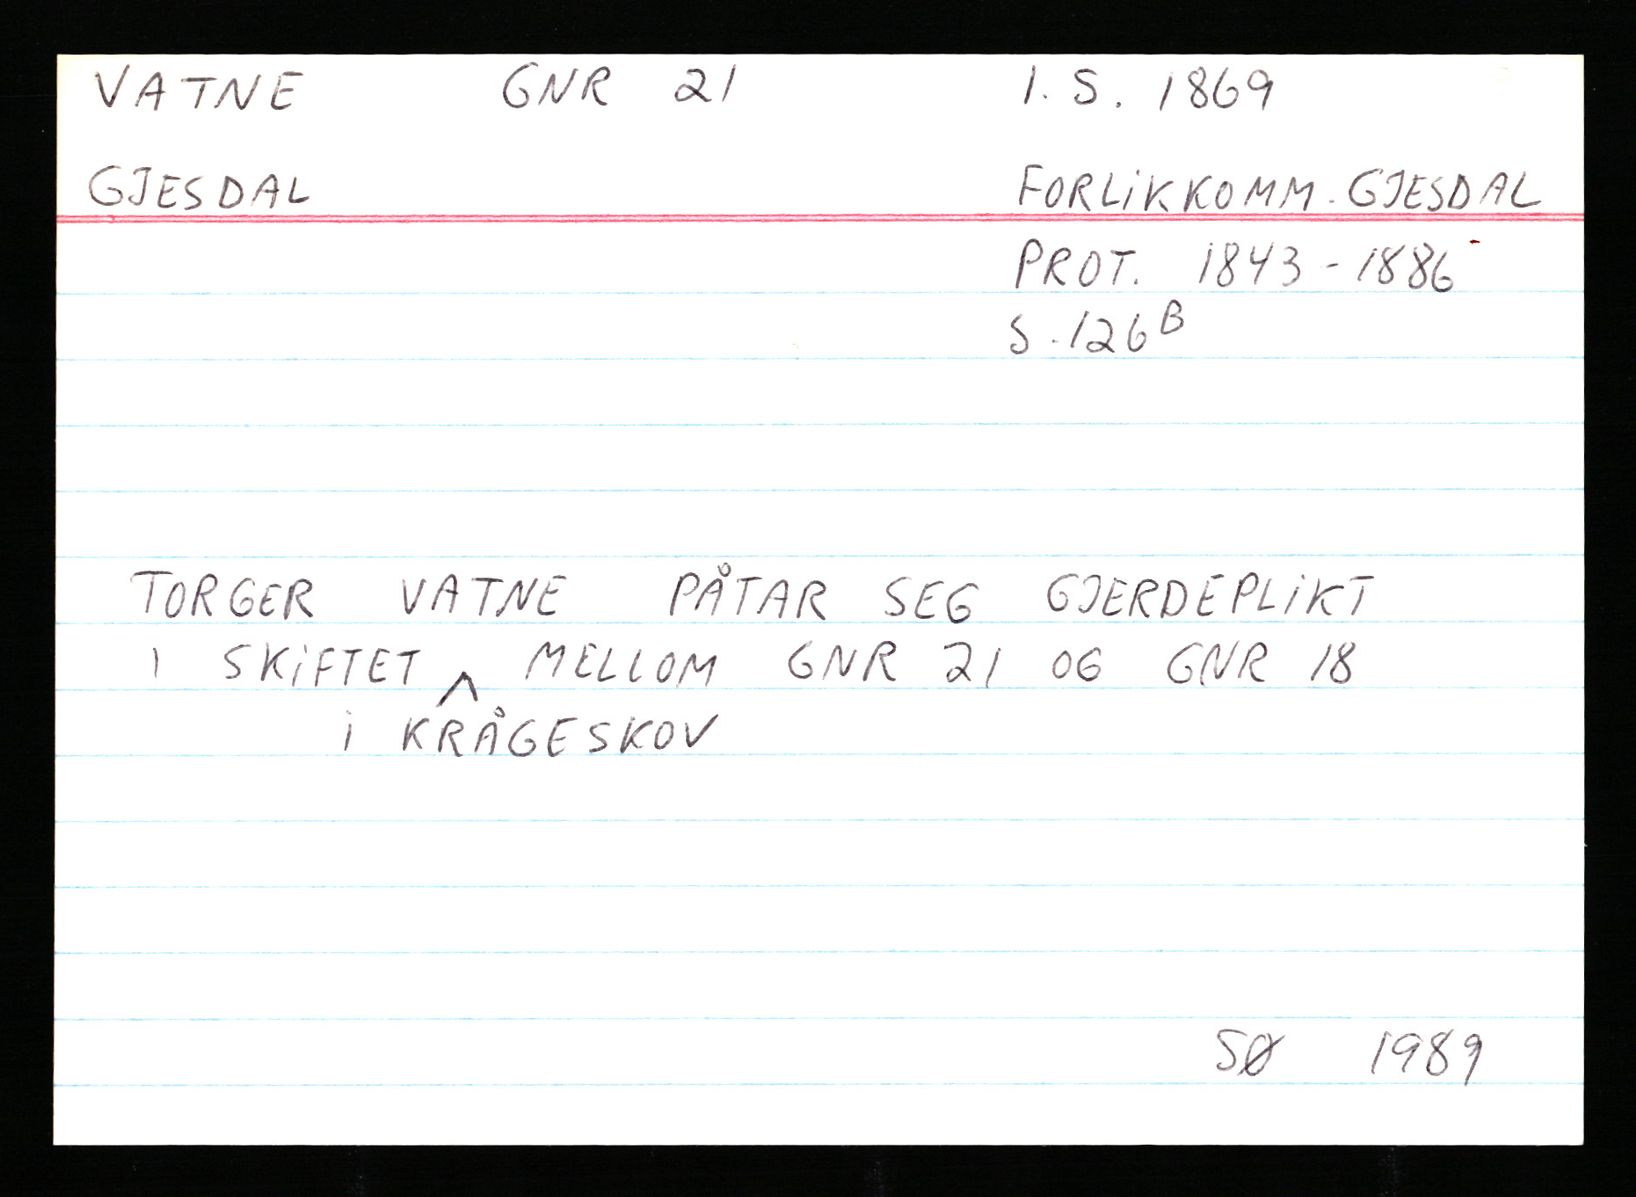 VATNE GNR 21 I. S. 1869
GJESDAL FORLIKKOMM. GJESDAL
PROT. 1843 - 1886
S. 126 B
TORGER VATNE PÅTAR SEG GJERDEPLIKT
I SKIFTET ^ MELLOM GNR 21 OG GNR 18
I KRÅGESKOV
SØ 1989